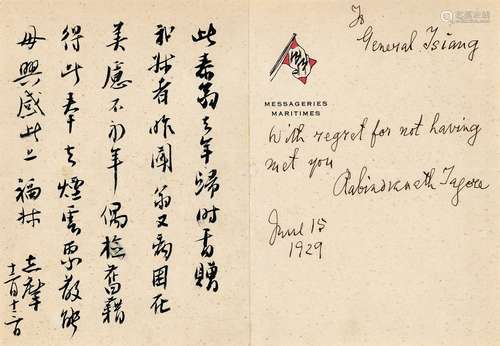 此泰翁去年歸時書贈
者昨聞翁又病困在
美慮不永年偶檢舊籍
得此奉去煙雲散能
毋興感此上 福林 志摩
To
General Tsiang
MESSAGERIES
MARITIMES
With regret for not having
met you
Rabindranath Tagore
June 15
1929